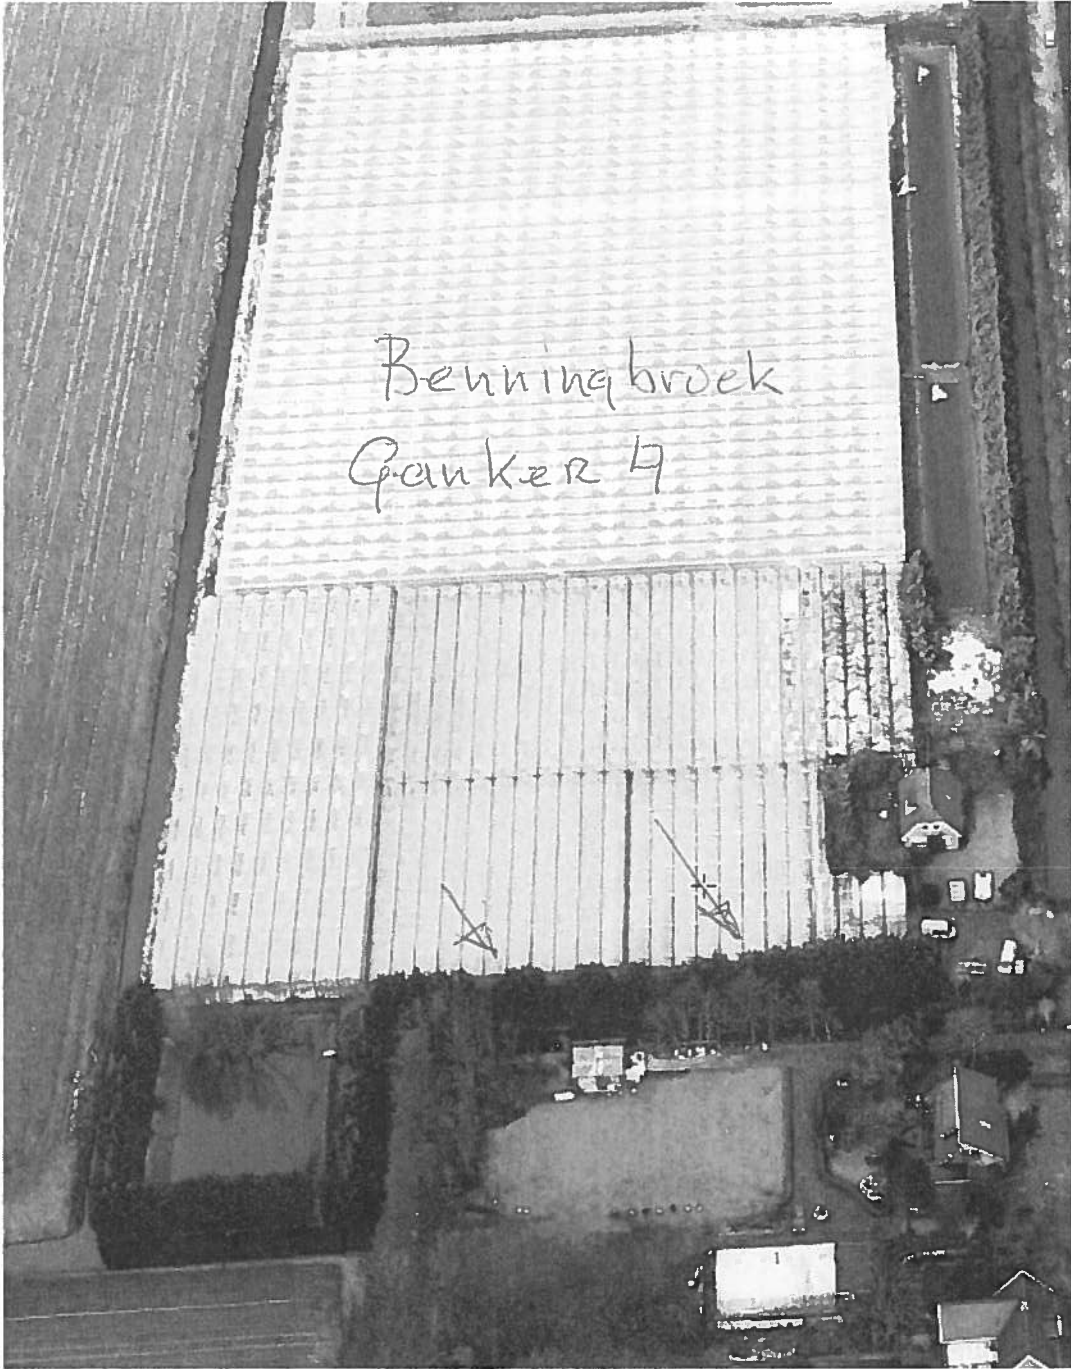 Benningbroek
Ganker 4
1